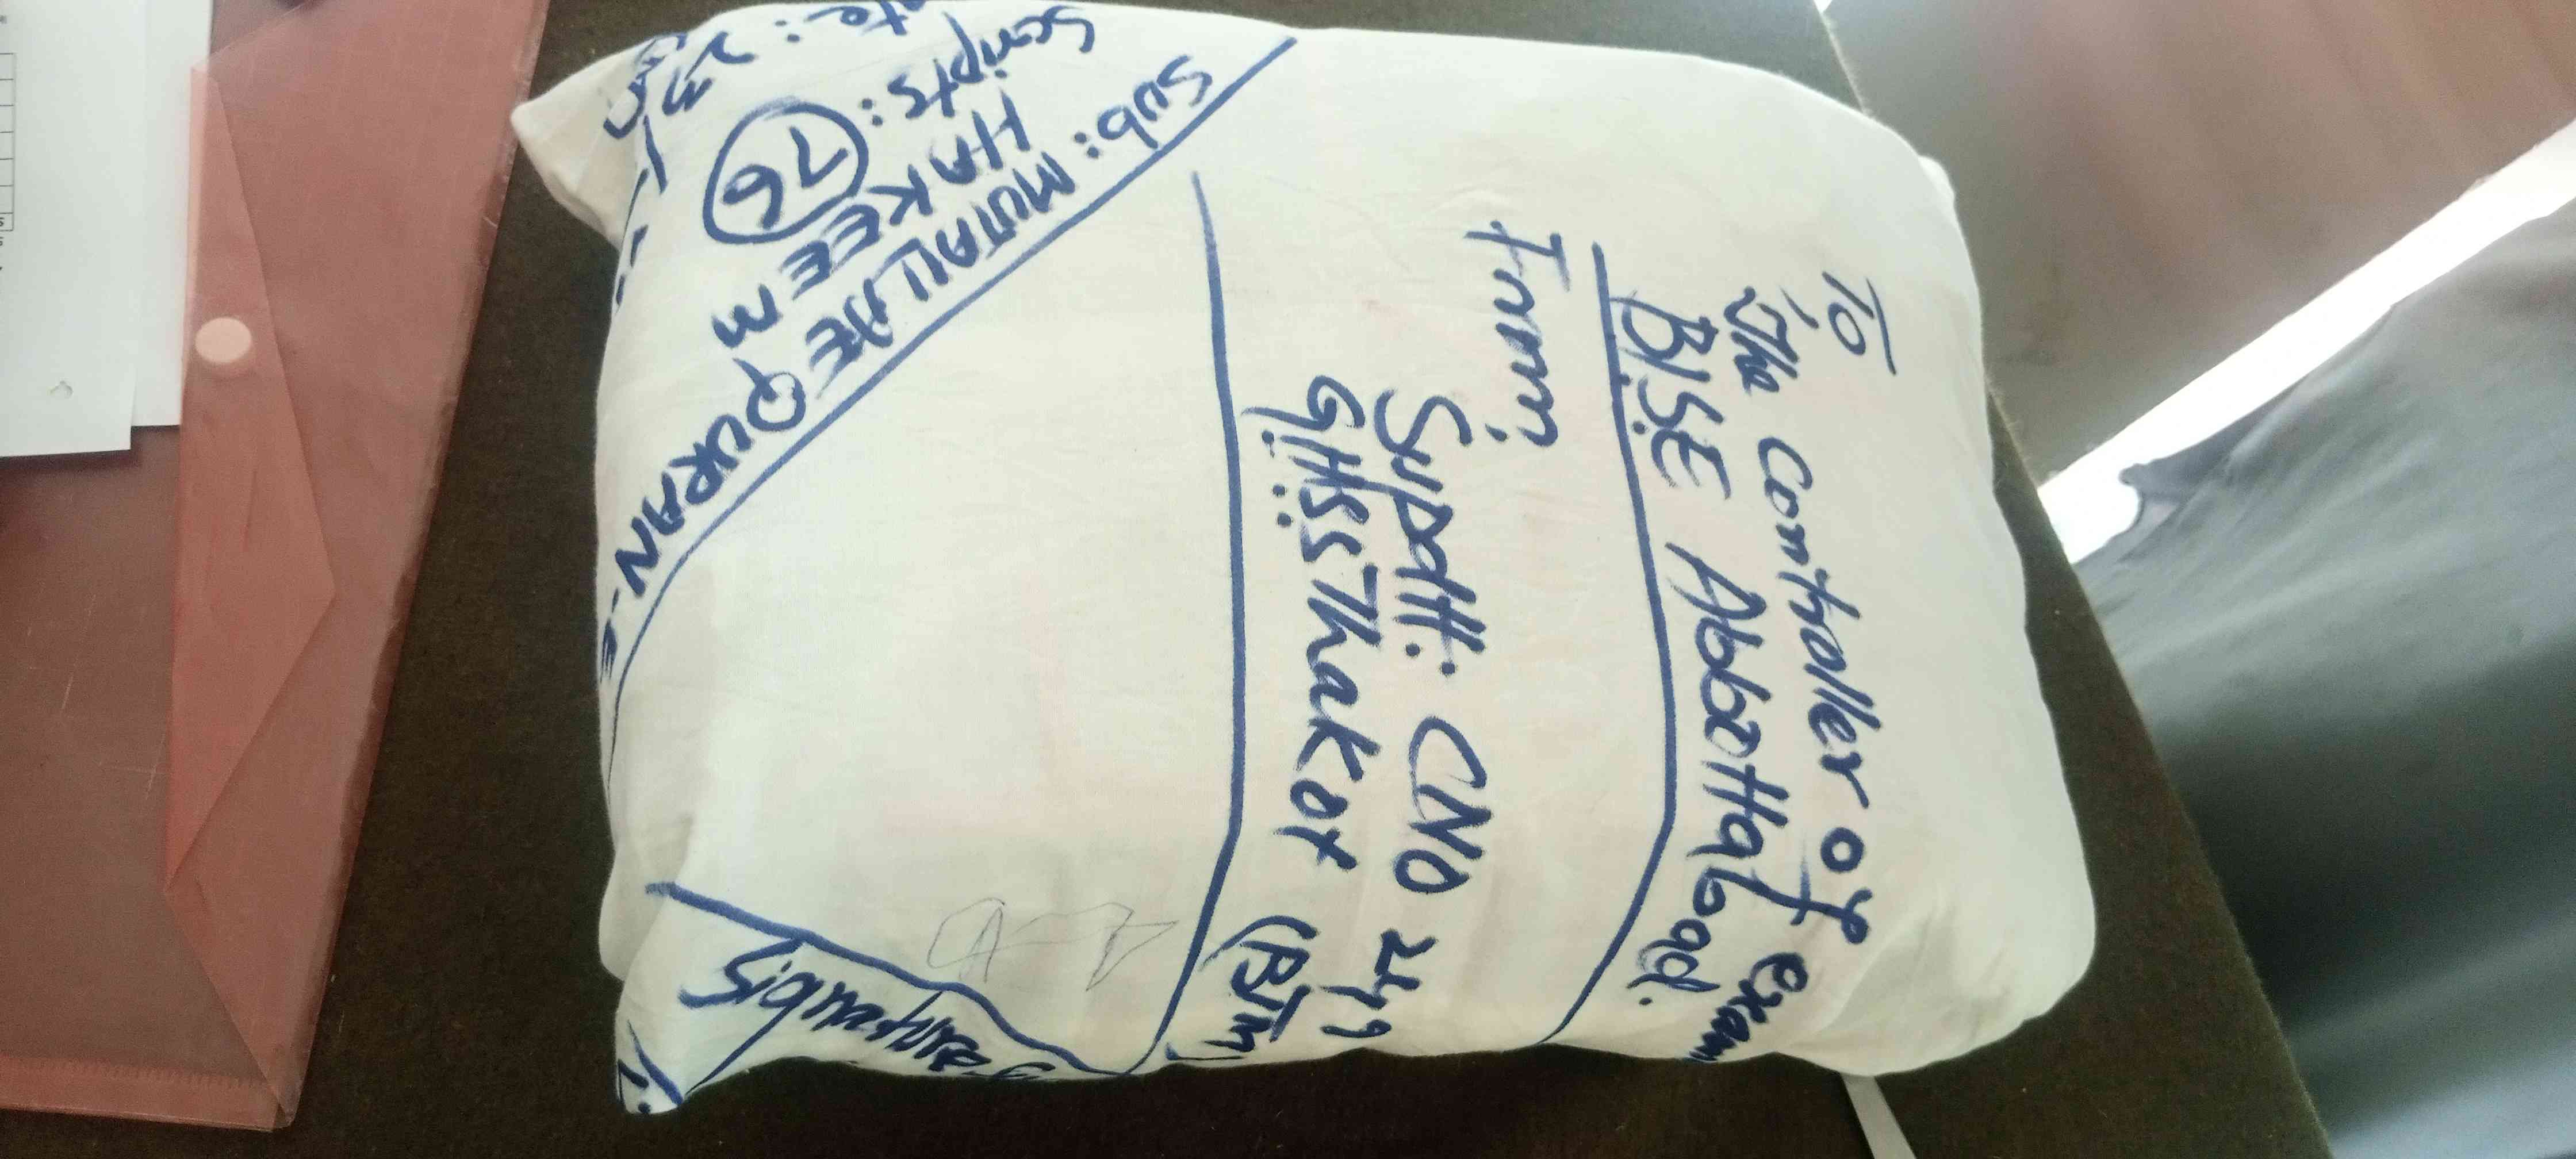 To
The Controller of exam
BISE Abbottabad.
From:
Supdtt: CNO 249
G.H.S.S Thakot (BTM
Sub: MUTALIAE QURAN-E
HAKEEM
Scripts: 76